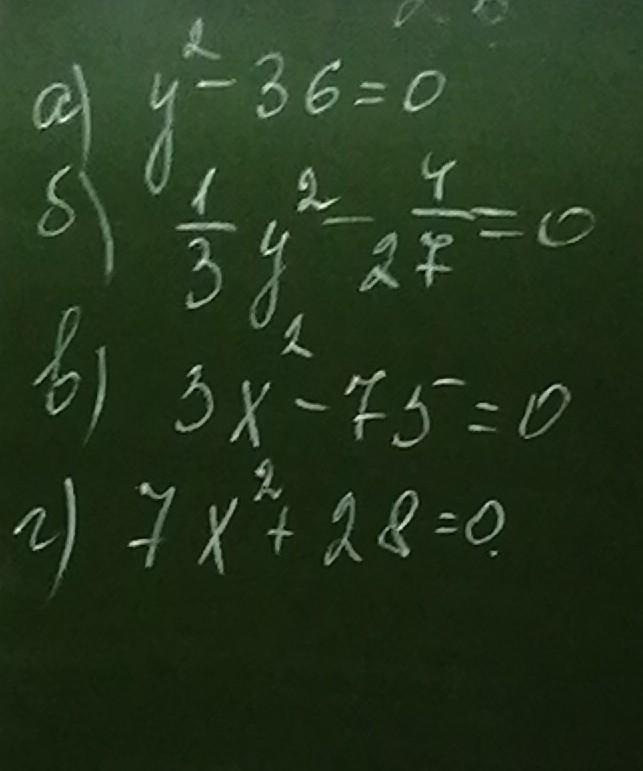 а) y² - 36 = 0
б) 1/3 y² - 4/27 = 0
в) 3x² - 75 = 0
г) 7x² + 28 = 0.